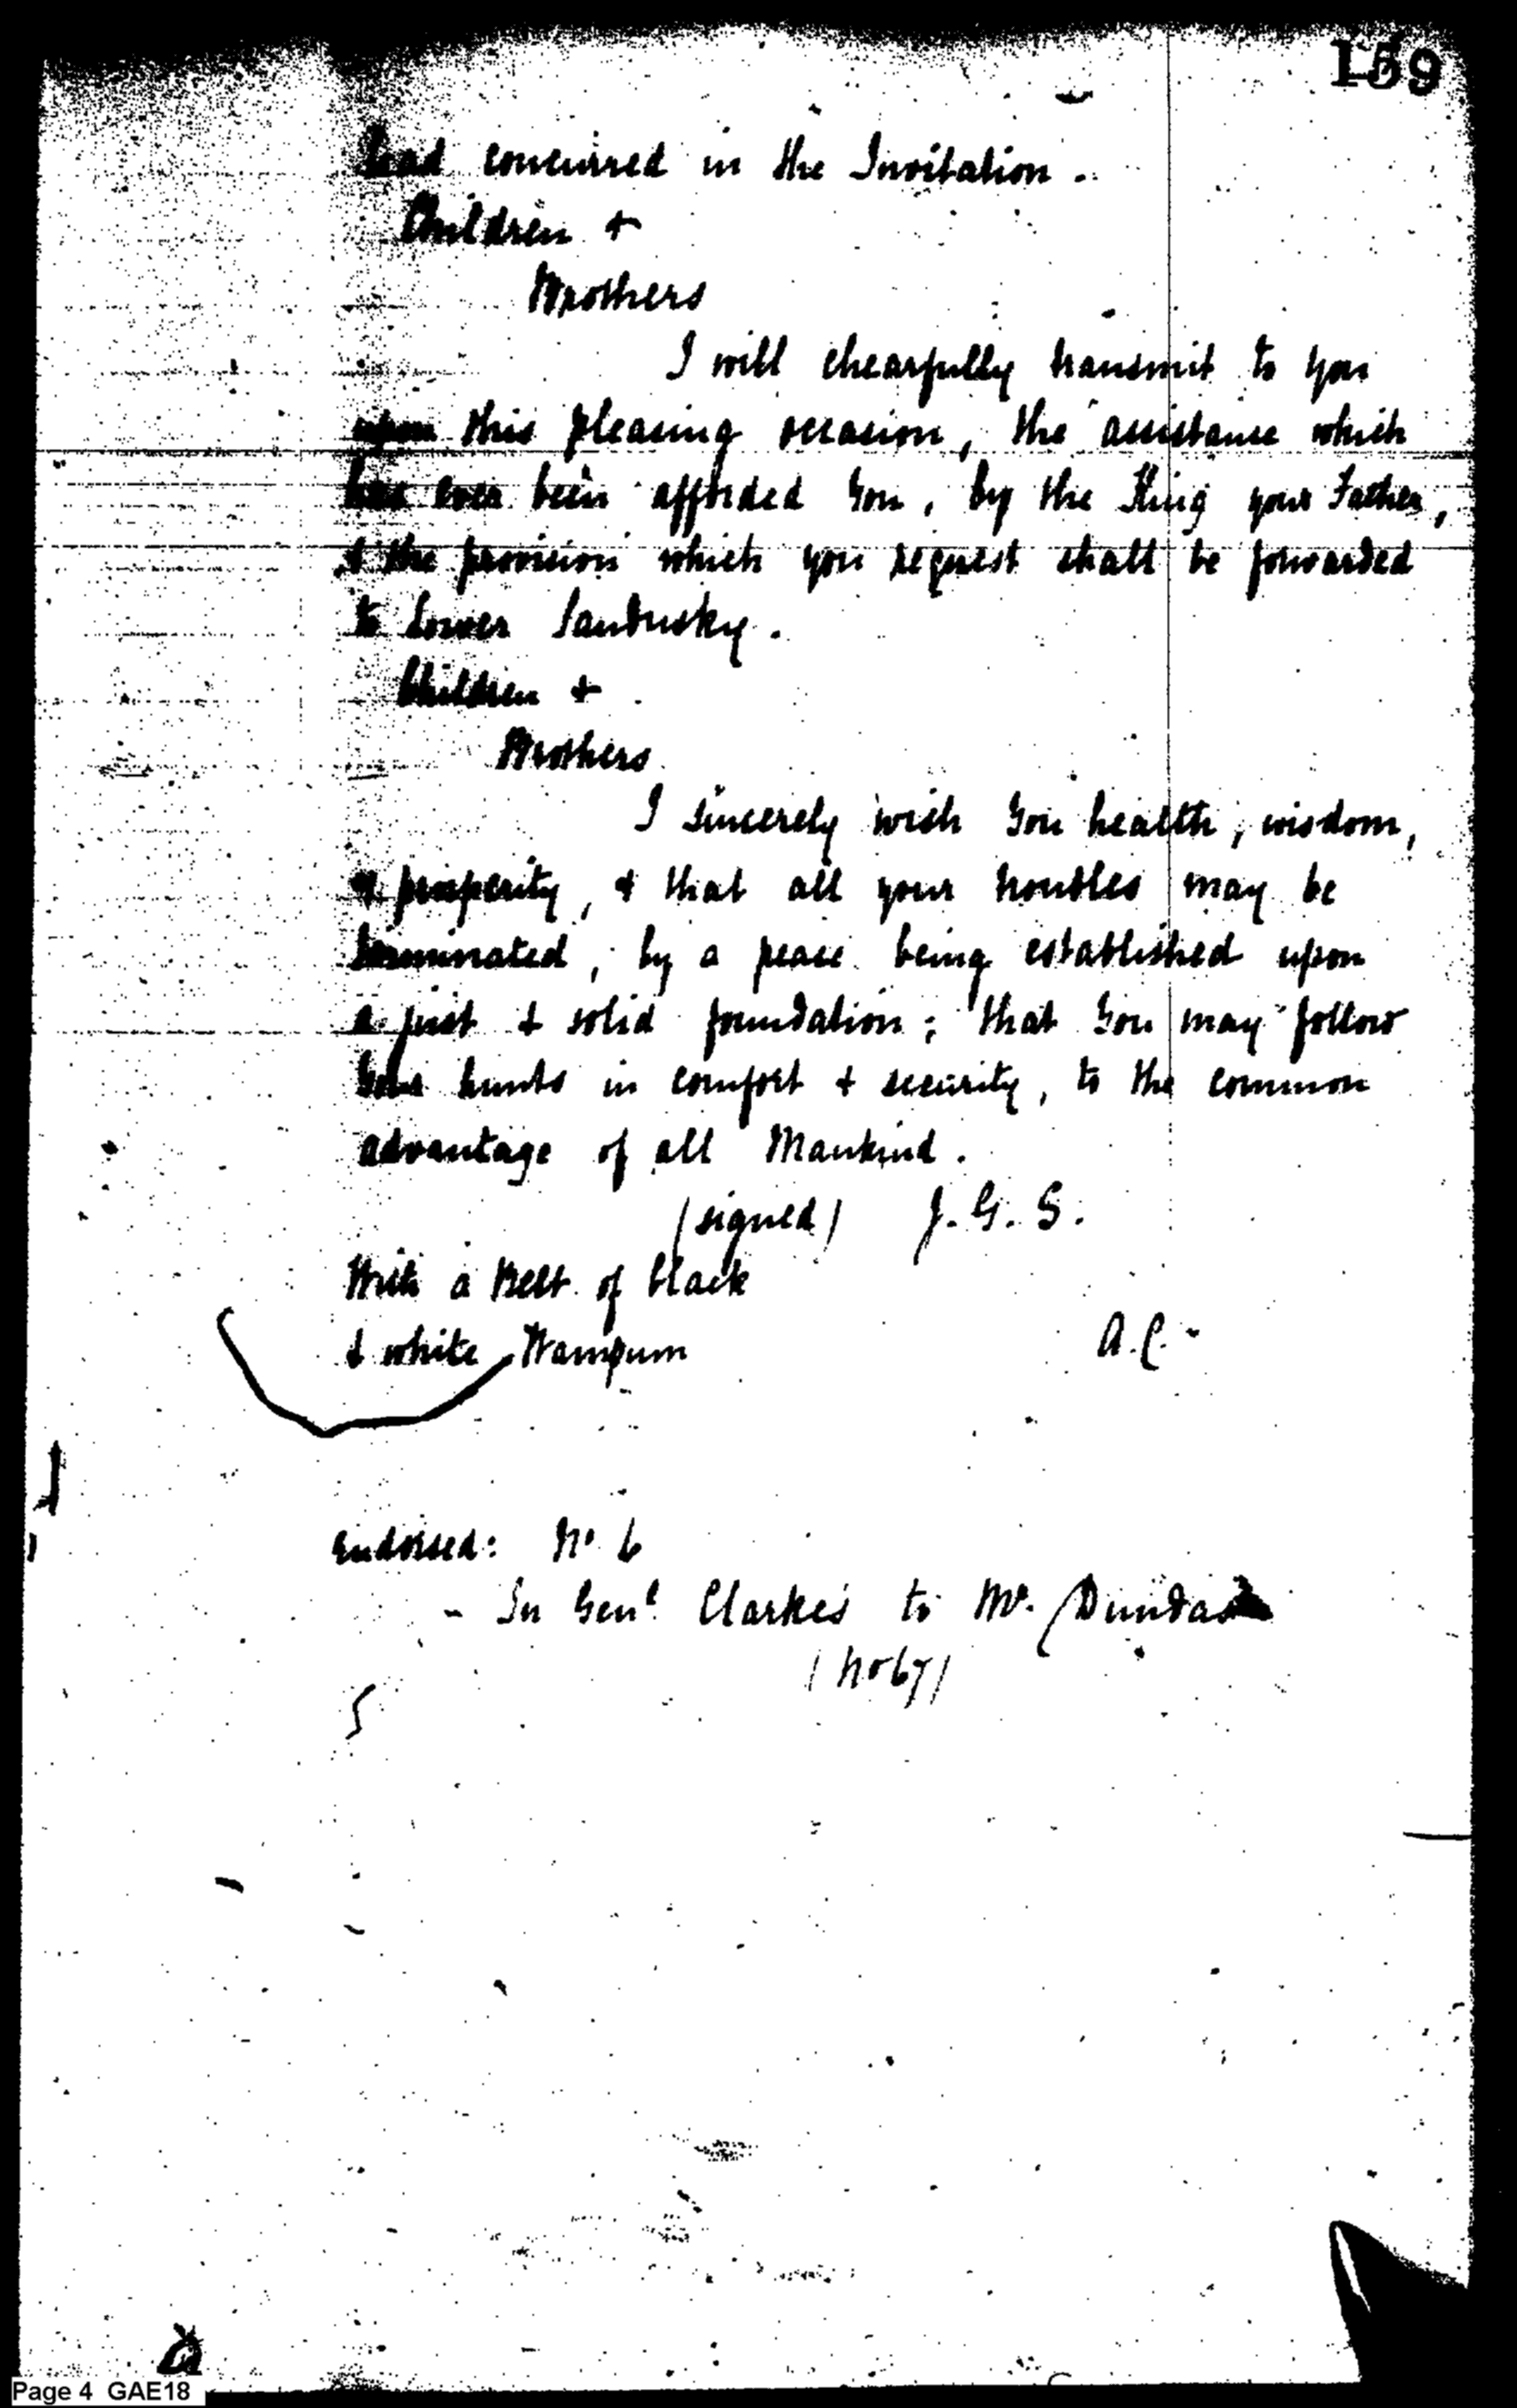 159
had concurred in the Invitation.
Children &
Brothers
I will chearfully transmit to you
upon this pleasing occasion, the assistance which
has ever been afforded You, by the King your Father,
& the provision which you request shall be forwarded
to Lower Sandusky.
Children &
Brothers
I sincerely wish You health, wisdom,
& prosperity, & that all your troubles may be
terminated, by a peace being established upon
a just & solid foundation; that You may follow
Your hunts in comfort & security, to the common
advantage of all Mankind.
(signed) J. G. S.
With a Belt of black
& white Wampum
A.C.
Endorsed: No 6
- In Genl. Clarke's to Mr. Dundas
(No 67)
Page 4 GAE18